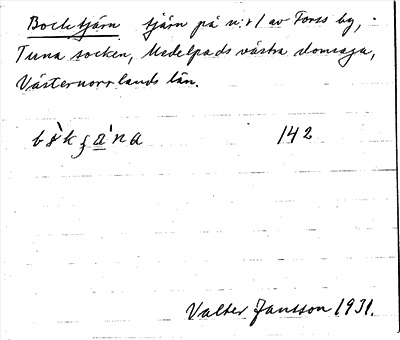 Bocktjärn tjärn på n:r 1 av Forss by,
Tuna socken, Medelpads västra domsaga,
Västernorrlands län.
142
Valter Jansson 1931.